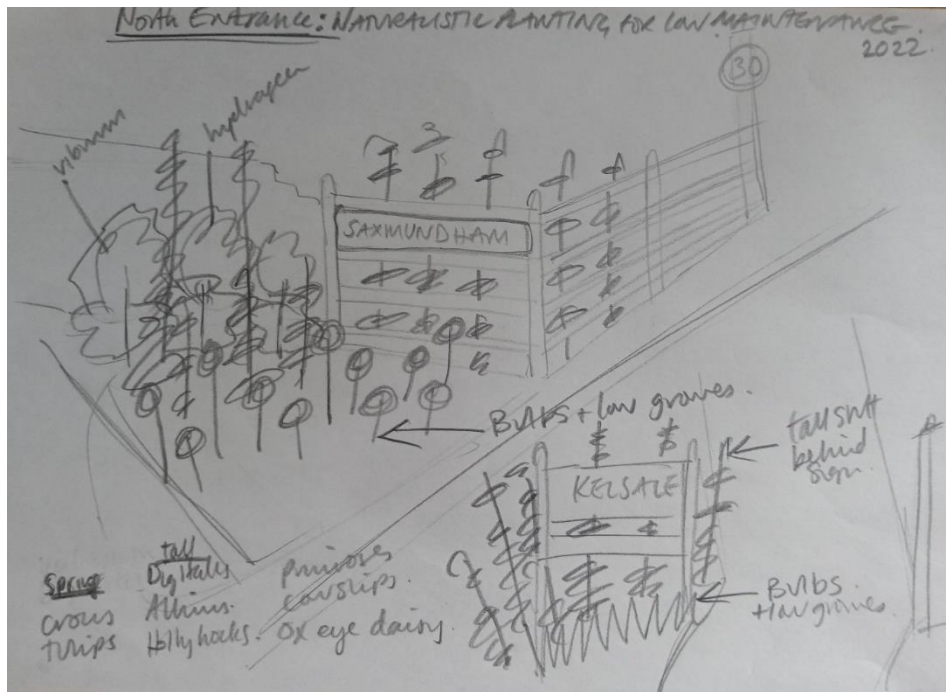 NORTH ENTRANCE: NATURALISTIC PLANTING FOR LOW MAINTENANCE.
2022.
30
viburnum
hydrangea
SAXMUNDHAM
BULBS + low graves.
tall stuff
behind
sign.
KELSALE
BULBS.
+ low graves.
Spring
crocus
tulips
tall
Digitalis
Alliums.
Hollyhocks.
primroses
cowslips.
ox eye daisy.